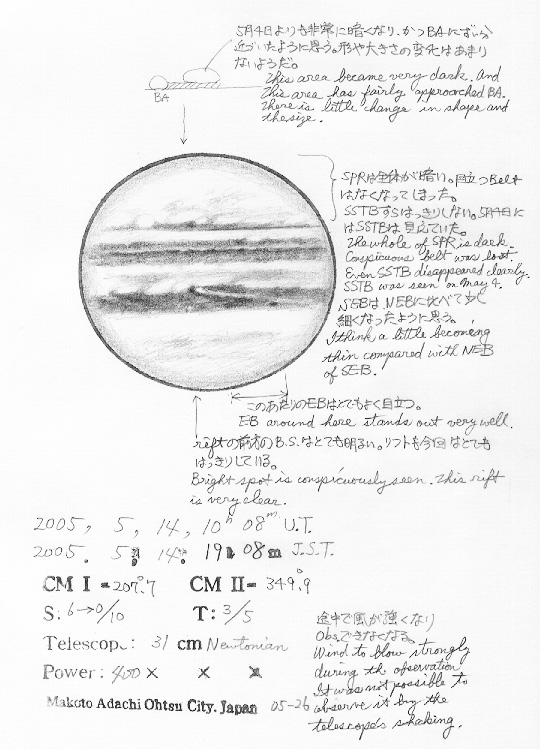 5月4日よりも非常に暗くなり、かつBAにずいぶん
近づいたように思う。形や大きさの変化はあまり
ないようだ。
This area became very dark. And
This area has fairly approached BA.
There is little change in shape and
the size.
BA
SPRは全体が暗い。目立つBelt
はなくなってしまった。
SSTBすらはっきりしない。5月4日に
はSSTBは見えていた。
The whole of SPR is dark.
Conspicuous Belt was lost.
Even SSTB disappeared clearly.
SSTB was seen on May 4.
SEBはNEBに比べて少し
細くなったように思う。
I think a little becoming
thin compared with NEB
of SEB.
このあたりのEBはとてもよく目立つ。
EB around here stands out very well.
riftの前方のB.S.はとても明るい。リフトも今回はとても
はっきりしている。
Bright spot is conspicuously seen. This rift
is very clear.
2005, 5, 14, 10h 08m U.T.
2005. 5. 14. 19h 08m J.S.T.
CM I = 207.°7 CM II = 349.°9
S: 6→0/10 T: 3/5
Telescope: 31 cm Newtonian
Power: 400 × × ×
Makoto Adachi Ohtsu City. Japan 05-26
途中で風が強くなり
Obs.できなくなる。
Wind to blow strongly
during the observation
It was not possible to
observe it by the
telescope's shaking.